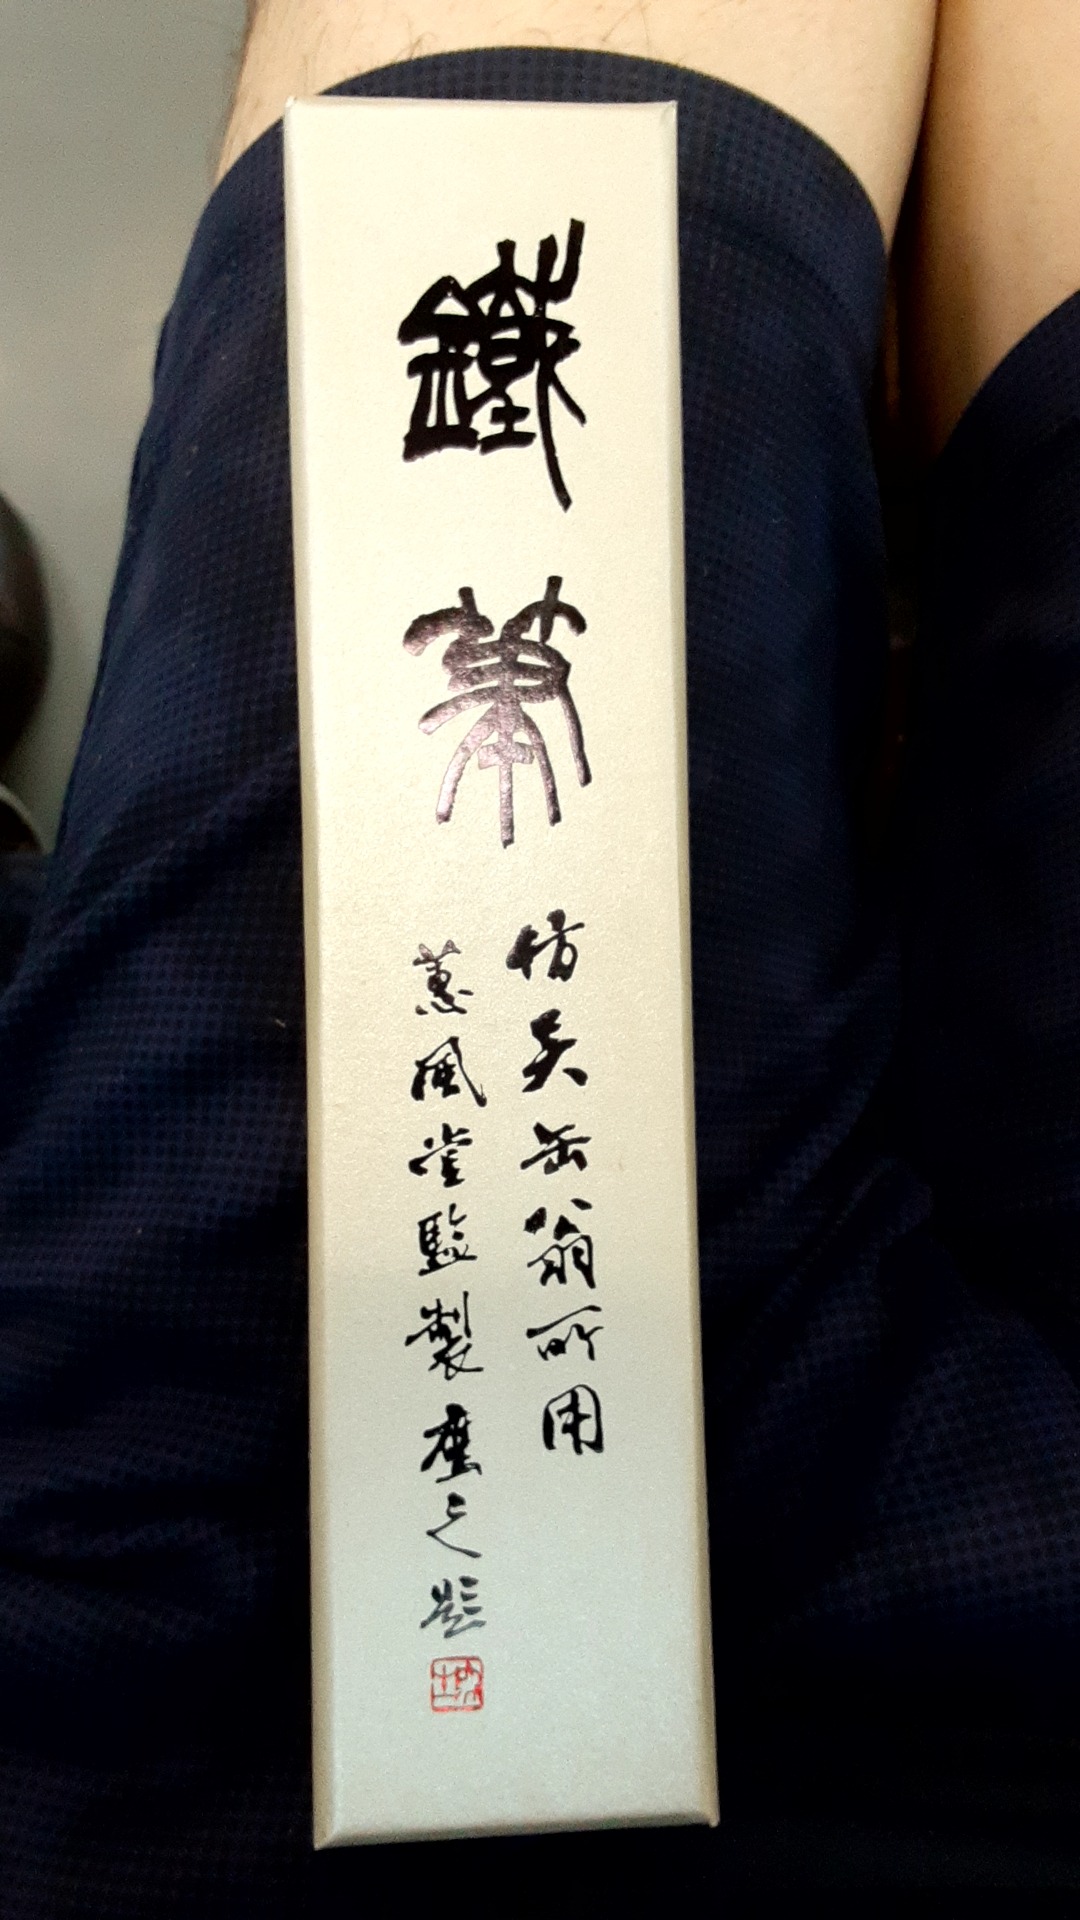 鐵筆
仿吳缶翁所用
蕙風堂監製塵之題